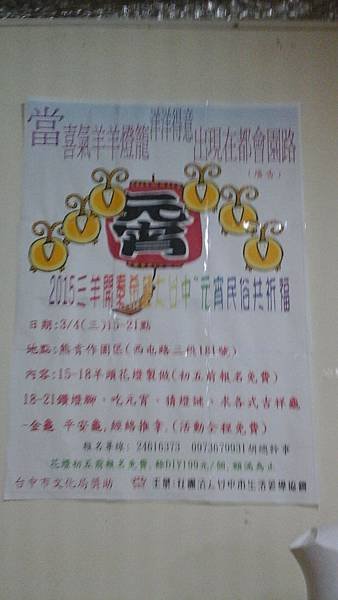 當 喜氣羊羊燈籠 洋洋得意 出現在都會園路
(廣告)
元宵
2015三羊開 台中"元宵民俗共祈福
日期:3/4(三)15-21點
地點:熊貴作園區(西屯路三段181號)
內容:15-18羊頭花燈製做(初五前報名免費)
18-21鑽燈腳、吃元宵、猜燈謎、求各式吉祥龜
-金龜 平安龜,經絡推拿,(活動全程免費)
報名專線: 24616373 0973679931胡總幹事
花燈初五前報名免費,餘DIY199元/個,額滿為止
台中市文化局獎助 主辦:社團法人台中市生活美學協會